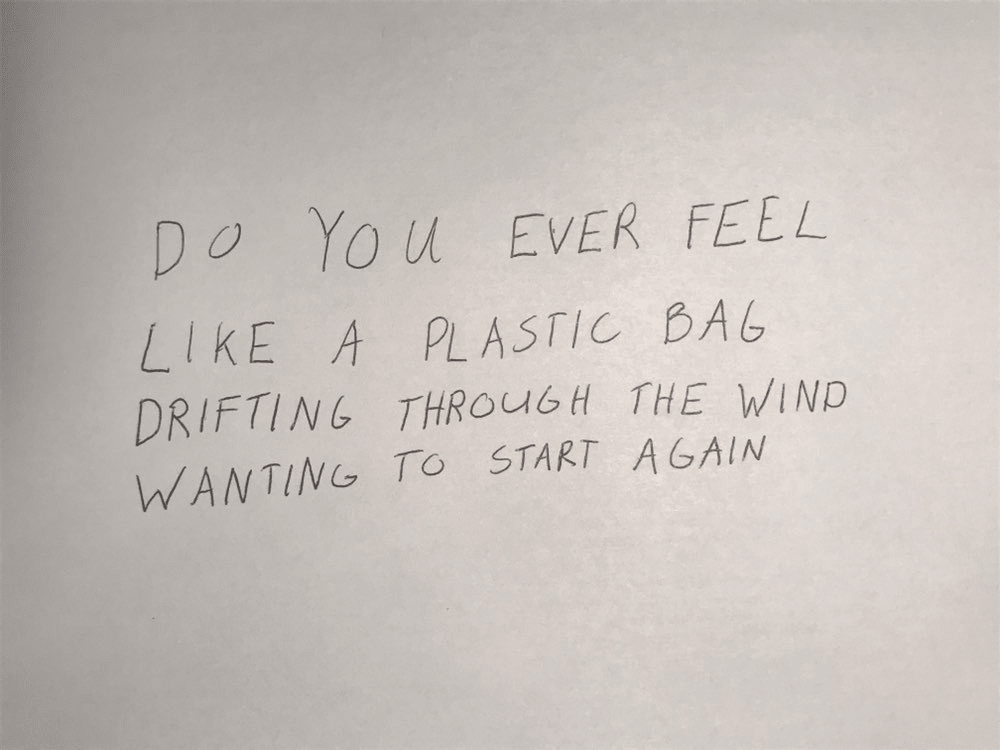 DO YOU EVER FEEL
LIKE A PLASTIC BAG
DRIFTING THROUGH THE WIND
WANTING TO START AGAIN